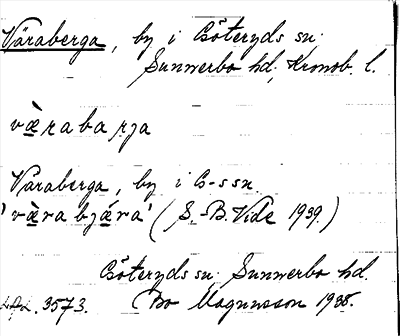 Väraberga, by i Göteryds sn.
Sunnerbo hd, Kronob. l.
væ̀rabarja
Väraberga, by i G-s sn.
'væ̀rabjæra' (S.-B. Vide 1939.)
Göteryds sn. Sunnerbo hd.
3573. Bo Magnusson 1935.